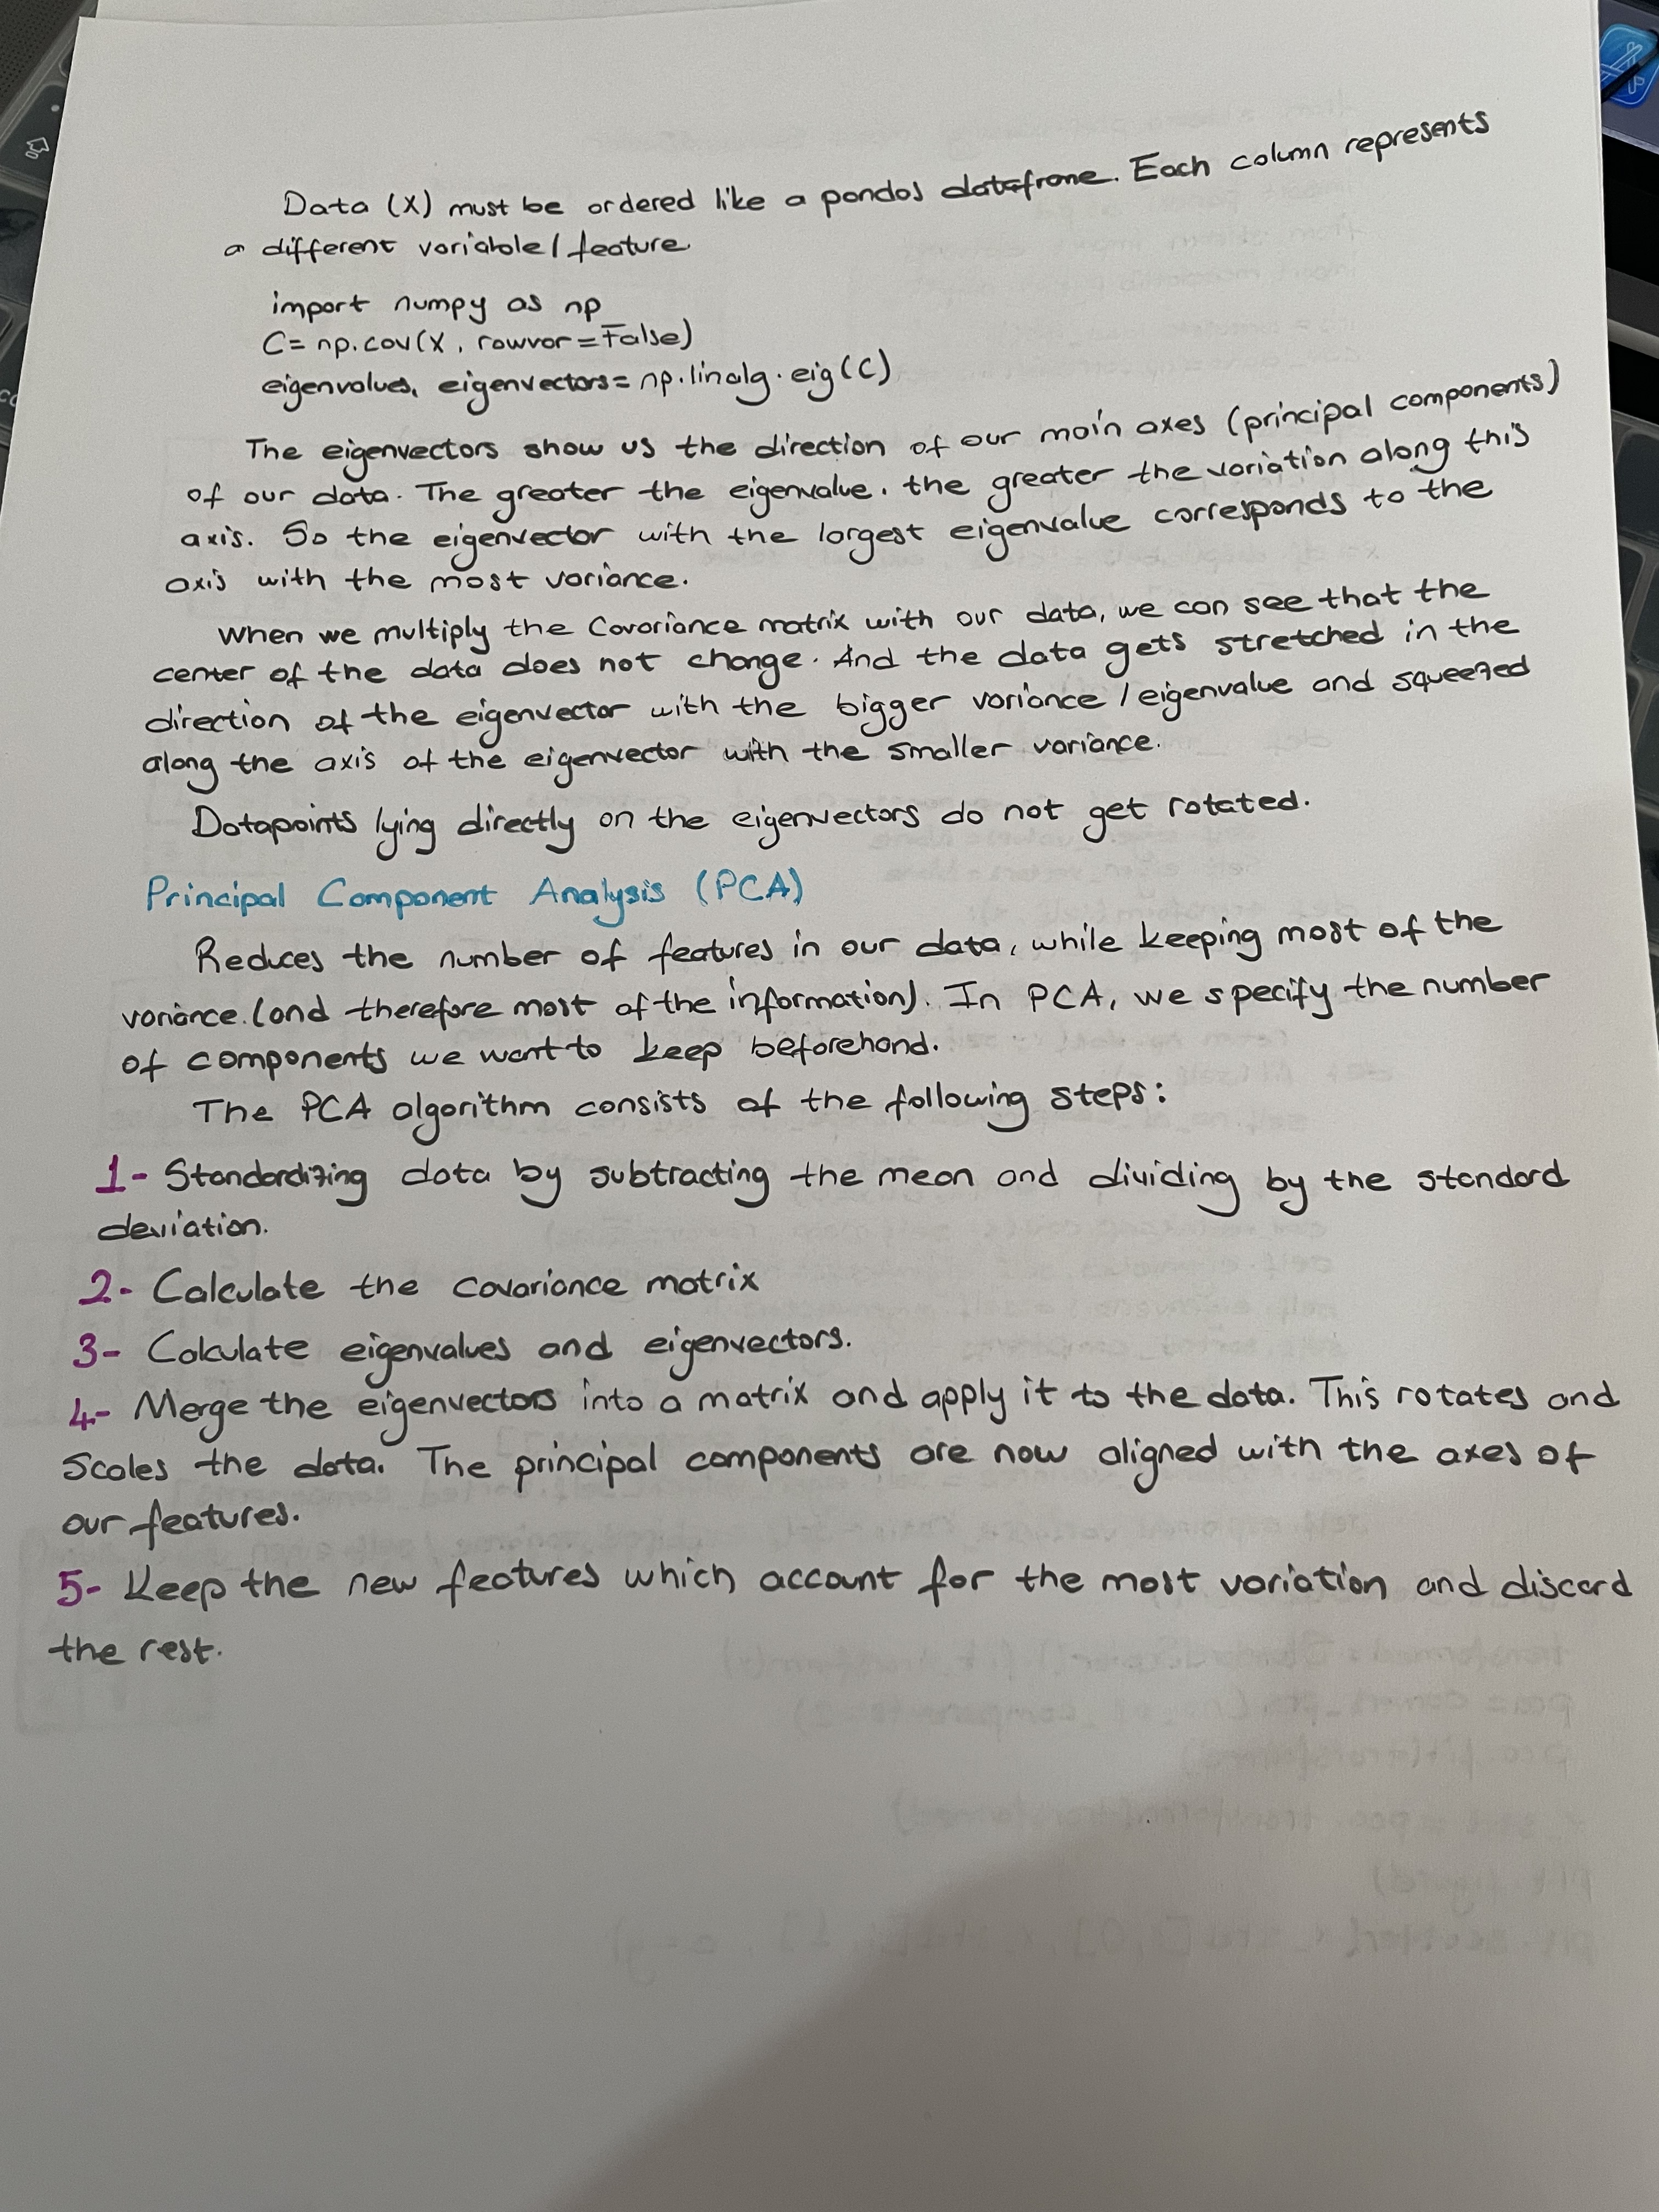 Data (X) must be ordered like a pandas dataframe. Each column represents
a different variable/feature.
import numpy as np
C= np.cov(X, rowvar=False)
eigenvalues, eigenvectors= np.linalg.eig(C)
The eigenvectors show us the direction of our main axes (principal components)
of our data. The greater the eigenvalue, the greater the variation along this
axis. So the eigenvector with the largest eigenvalue corresponds to the
axis with the most variance.
When we multiply the Covariance matrix with our data, we can see that the
center of the data does not change. And the data gets stretched in the
direction of the eigenvector with the bigger variance /eigenvalue and squeezed
along the axis of the eigenvector with the smaller variance.
Datapoints lying directly on the eigenvectors do not get rotated.
Principal Component Analysis (PCA)
Reduces the number of features in our data, while keeping most of the
variance.(and therefore most of the information). In PCA, we specify the number
of components we want to keep beforehand.
The PCA algorithm consists of the following steps:
1- Standardizing data by subtracting the mean and dividing by the standard
deviation.
2- Calculate the covariance matrix
3- Calculate eigenvalues and eigenvectors.
4- Merge the eigenvectors into a matrix and apply it to the data. This rotates and
scales the data. The principal components are now aligned with the axes of
our features.
5- Keep the new features which account for the most variation and discard
the rest.